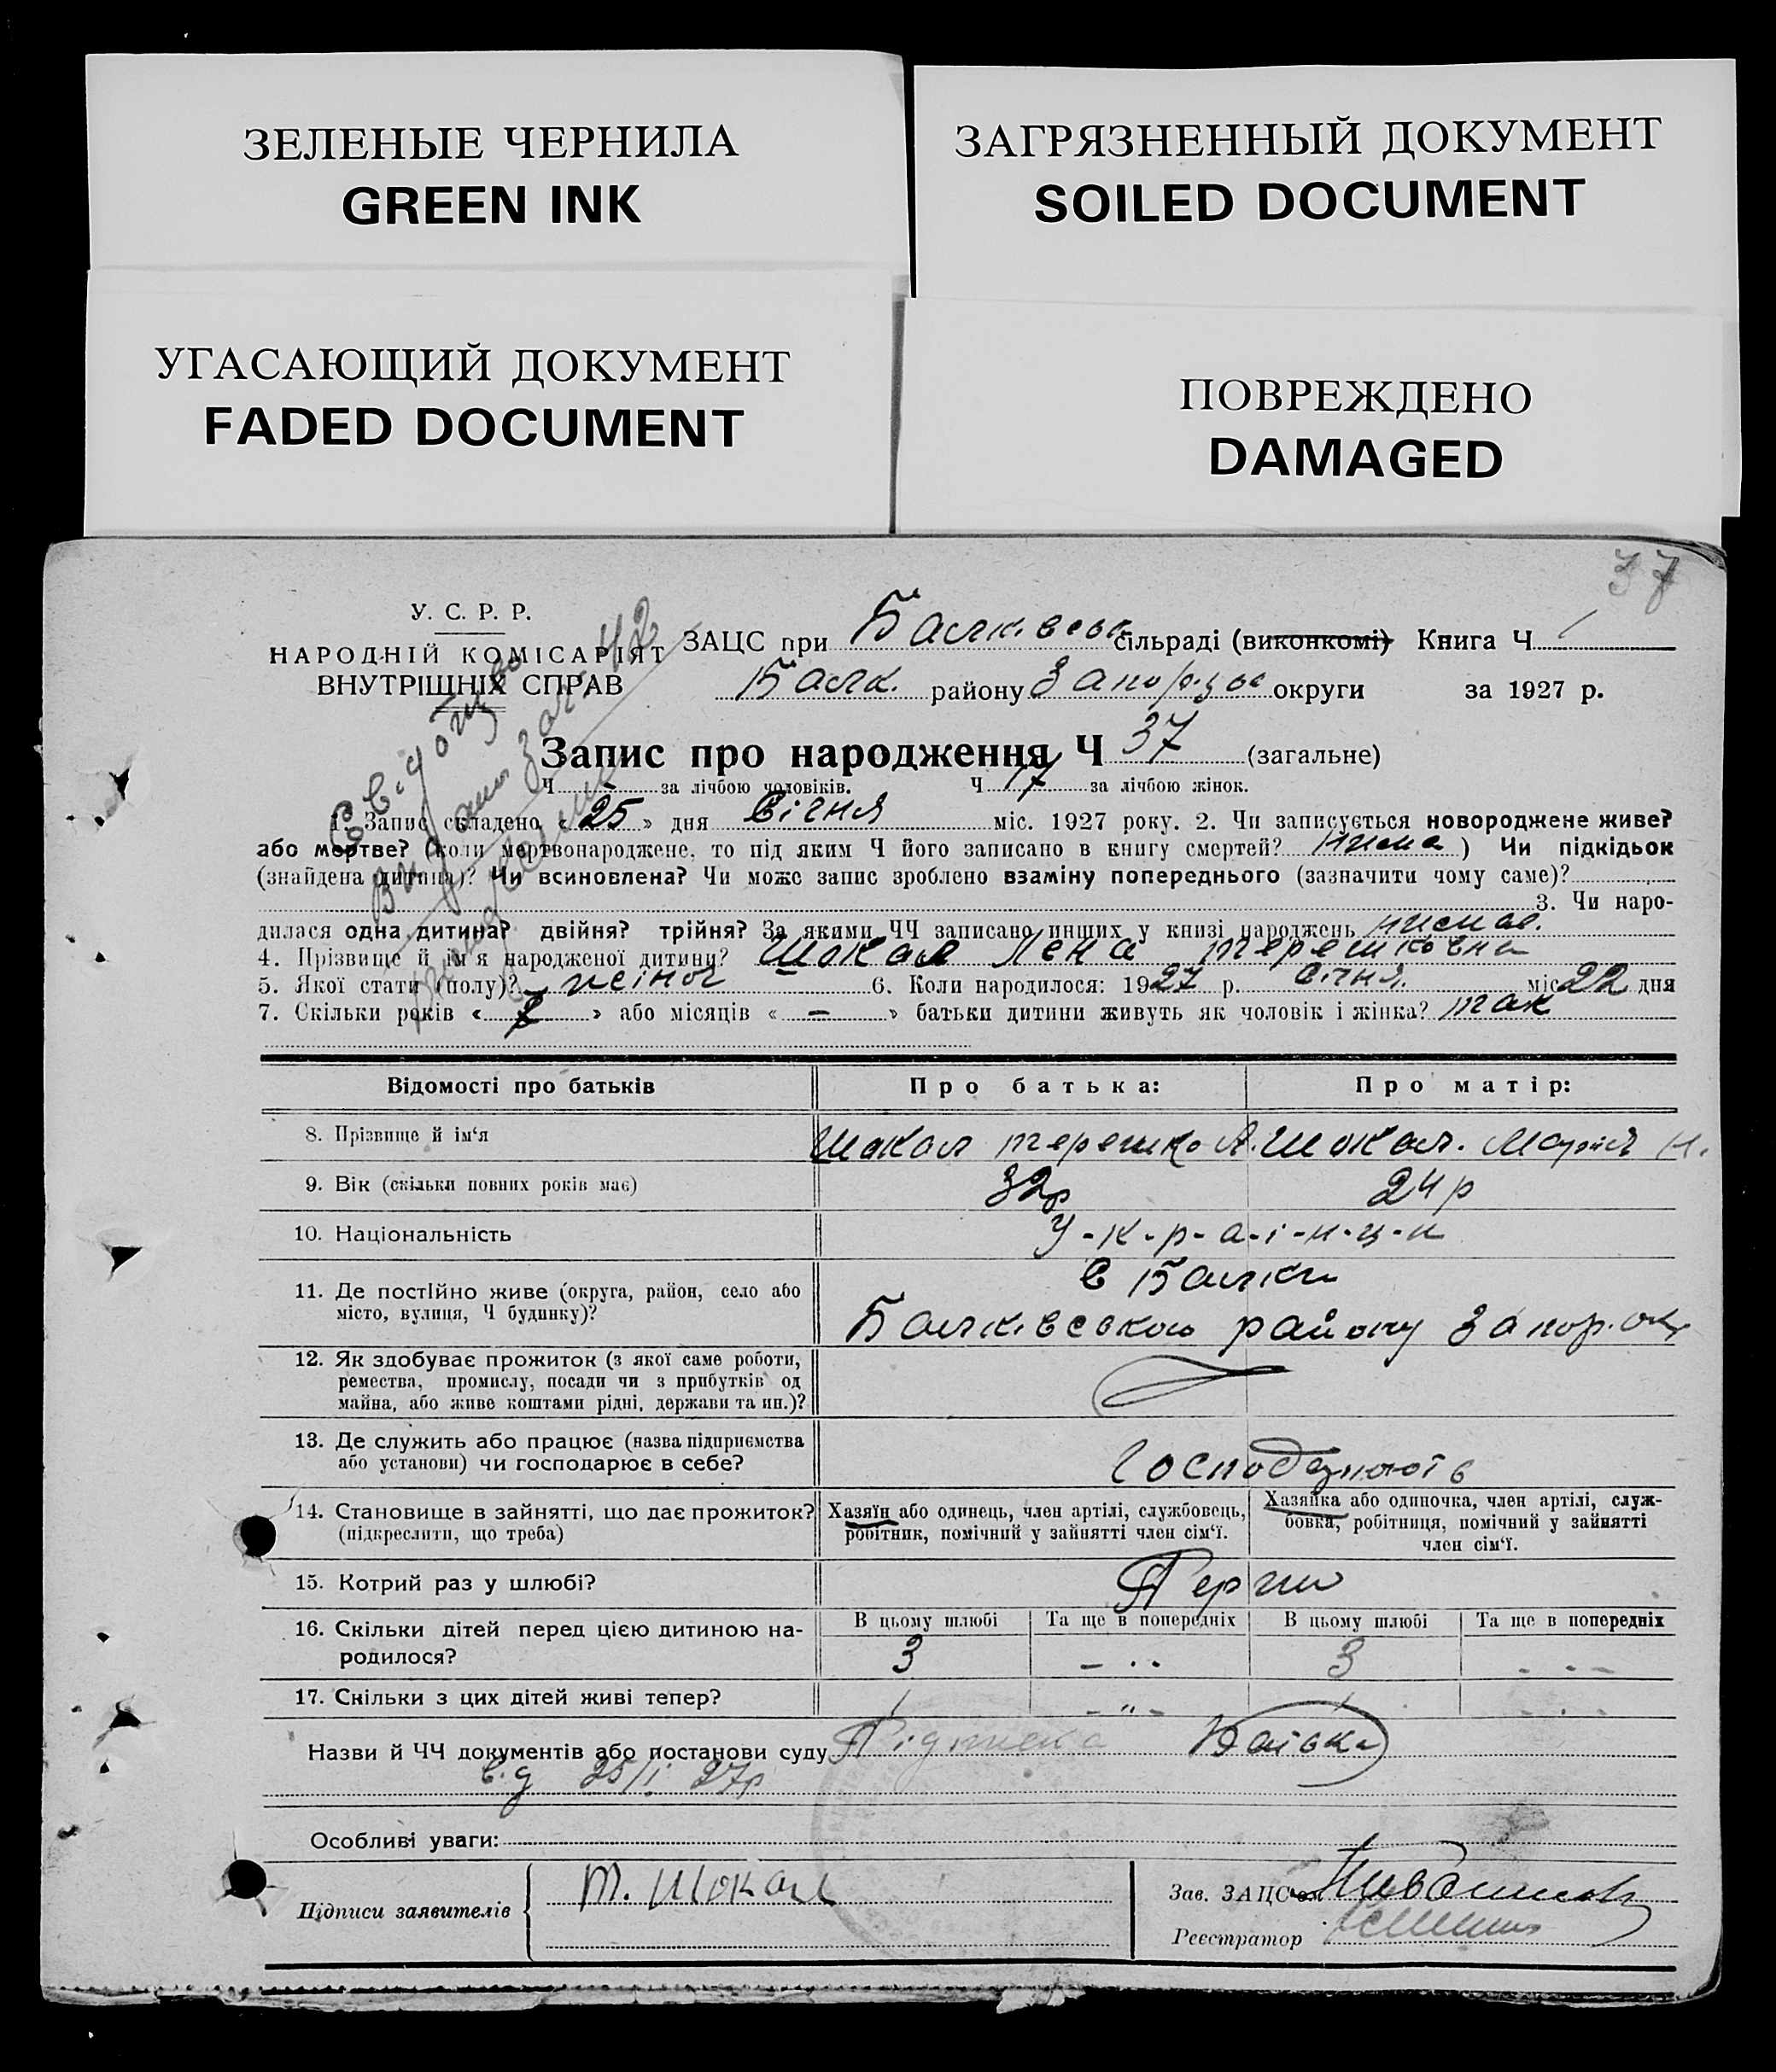 ЗЕЛЕНЫЕ ЧЕРНИЛА
GREEN INK
ЗАГРЯЗНЕННЫЙ ДОКУМЕНТ
SOILED DOCUMENT
УГАСАЮЩИЙ ДОКУМЕНТ
FADED DOCUMENT
ПОВРЕЖДЕНО
DAMAGED
37
У. С. Р. Р.
НАРОДНІЙ КОМІСАРІЯТ
ВНУТРІШНІХ СПРАВ
ЗАЦС при Балківськ сільраді (виконкомі) Книга Ч 1
Балк. району Запоріз округи за 1927 р.
Запис про народження Ч 37 (загальне)
Ч за лічбою чоловіків. Ч 17 за лічбою жінок.
1. Запис складено « 25 » дня Січня міс. 1927 року. 2. Чи записується новороджене живе?
або мертве? (коли мертвонароджене, то під яким Ч його записано в книгу смертей? ) Чи підкідьок
(знайдена дитина)? Чи всиновлена? Чи може запис зроблено взаміну попереднього (зазначити чому саме)?
3. Чи наро-
дилася одна дитина? двійня? трійня? За якими ЧЧ записано инших у книзі народжень немає.
4. Прізвище й ім'я народженої дитини? Шокал Лена терешковна
5. Якої стати (полу)? жіноч 6. Коли народилося: 1927 р. Січня. міс 22 дня
7. Скільки років « » або місяців « – » батьки дитини живуть як чоловік і жінка? так
Відомості про батьків
Про батька:
Про матір:
8. Прізвище й ім'я
Шокал терешко А.
Шокал. Марія Н.
9. Вік (скільки повних років має)
32р
24р
10. Національність
У-к-р-а-і-н-ц-и
11. Де постійно живе (округа, район, село або
місто, вулиця, Ч будинку)?
с Балки
Балківського району Запор. окр
12. Як здобуває прожиток (з якої саме роботи,
ремества, промислу, посади чи з прибутків од
майна, або живе коштами рідні, держави та ин.)?
13. Де служить або працює (назва підприємства
або установи) чи господарює в себе?
14. Становище в зайнятті, що дає прожиток?
(підкреслити, що треба)
Хазяїн або одинець, член артілі, службовець,
робітник, помічний у зайнятті член сім'ї.
Хазяйка або одиночка, член артілі, служ-
бовка, робітниця, помічний у зайнятті
член сім'ї.
15. Котрий раз у шлюбі?
Перши
16. Скільки дітей перед цією дитиною на-
родилося?
В цьому шлюбі
Та ще в попередніх
В цьому шлюбі
Та ще в попередніх
3
3
17. Скільки з цих дітей живі тепер?
1
1
Назви й ЧЧ документів або постанови суду
25/I 27р
Особливі уваги:
Підписи заявителів
Т. Шокал
Зав. ЗАЦС'ом
Реєстратор